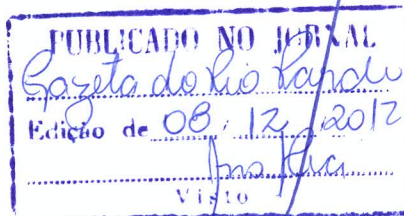 PUBLICADO NO JORNAL
Gazeta do Rio Pardo
Edição de 08 / 12 / 2012
Visto